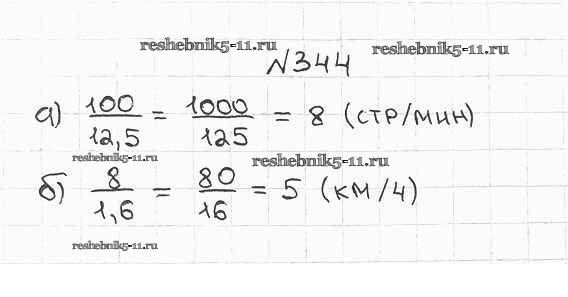 reshebnik5-11.ru reshebnik5-11.ru
№344
а) 100/12,5 = 1000/125 = 8 (стр/мин)
reshebnik5-11.ru reshebnik5-11.ru
б) 8/1,6 = 80/16 = 5 (км/ч)
reshebnik5-11.ru